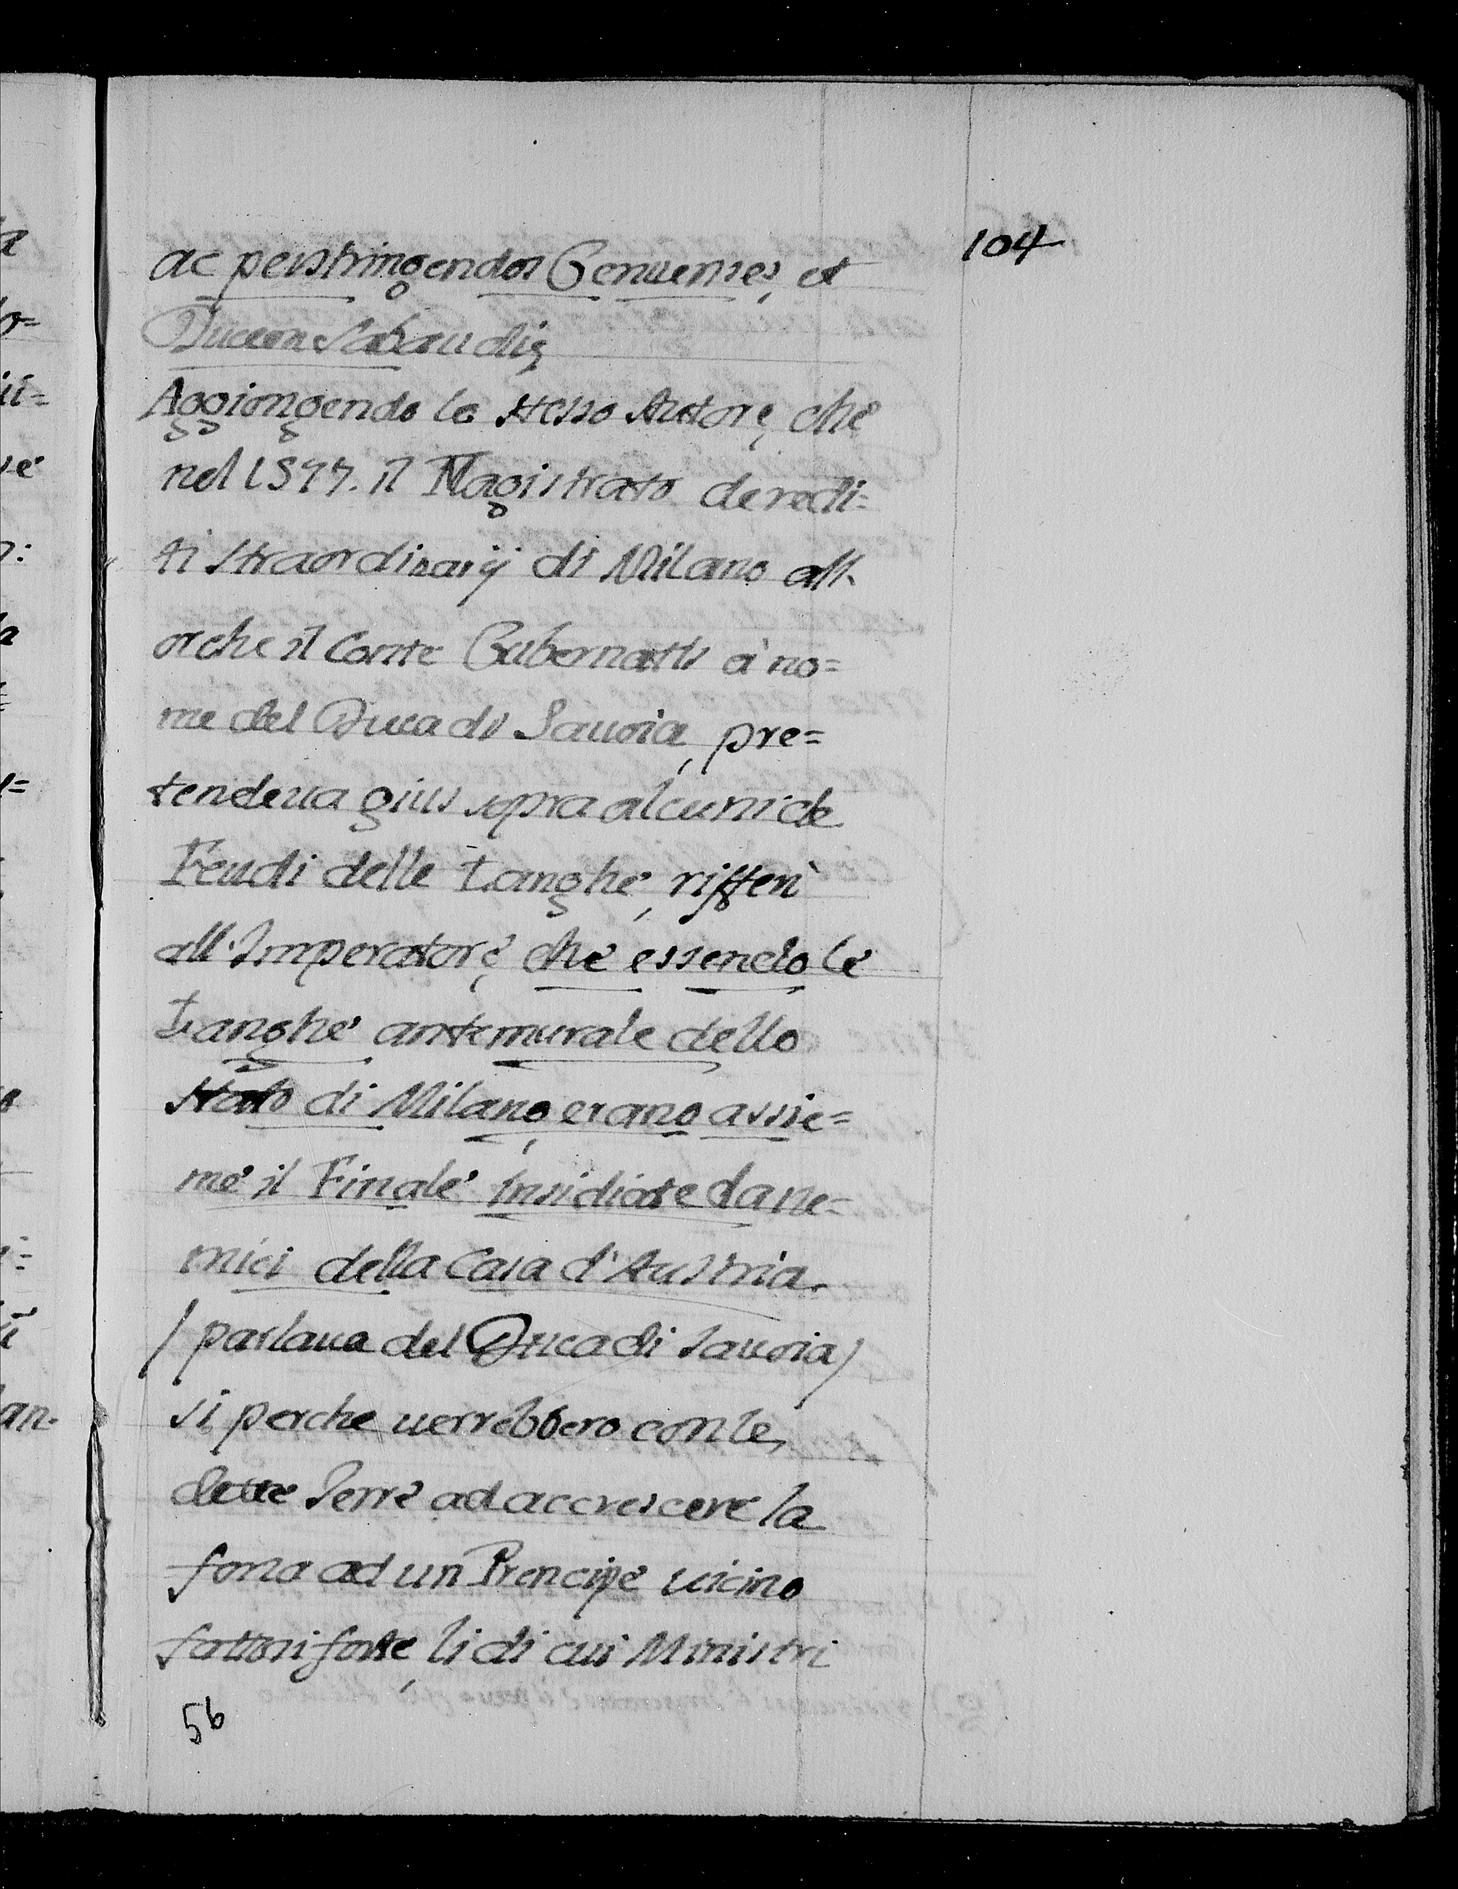 104
ac perstringendos Genuenses, et
Ducem Sabaudię
Aggiongendo lo stesso Autore, che
nel 1577. il Magistrato de redi=
ti straordinarij di Milano all
orche il Conte Gubernatis à no=
me del Duca di Sauoia, pre=
tendeua gius sopra alcuni de
Feudi delle Langhe, rifferì
all'Imperatore, che essendo le
Langhe antemurale dello
Stato di Milano, erano assie=
me il Finale insidiate da ne=
mici della Casa d'Austria.
/ parlaua del Duca di Sauoia /
si perche uerrebbero con le
dette Terre ad accrescere la
forza ad un Prencipe uicino
fattosi forte, li di cui Ministri
56